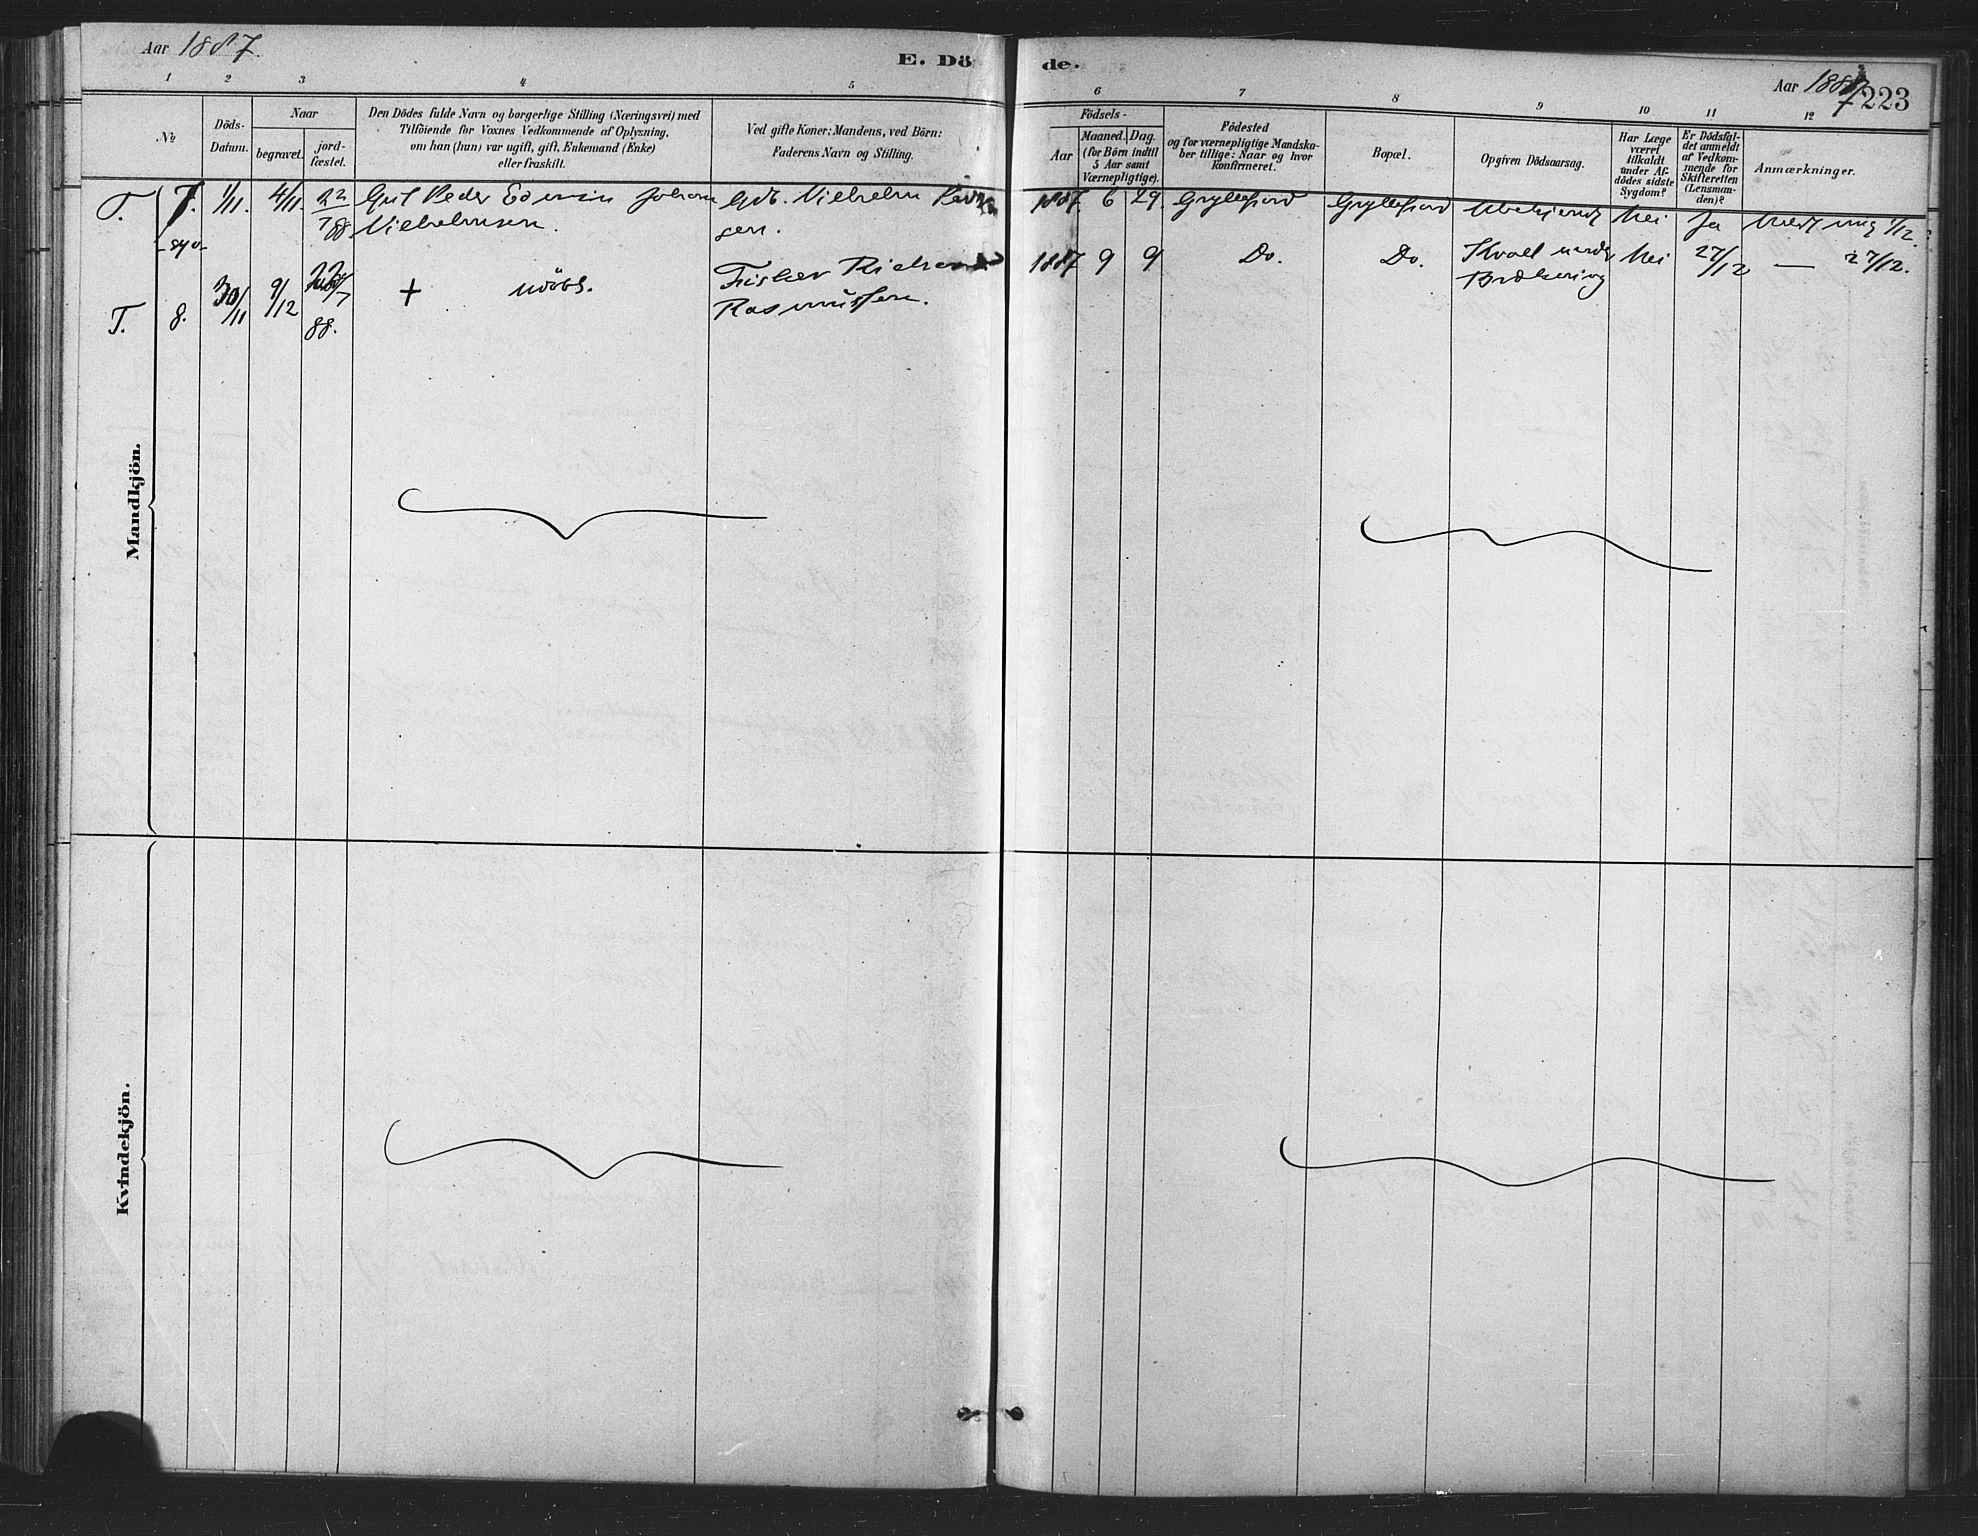 Aar 1887
E. Dö de.
Aar 1887
223
1 2 3 4 5 6 7 8 9 10 11 12
No
Döds-
Datum.
Naar
begravet.
jord-
fæstet.
Den Dödes fulde Navn og borgerlige Stilling (Næringsvei) med
Tilföiende for Voxnes Vedkommende af Oplysning,
om han (hun) var ugift, gift, Enkemand (Enke)
eller fraskilt.
Ved gifte Koner: Mandens, ved Börn:
Faderens Navn og Stilling.
Födsels-
Aar
Maaned. Dag.
(for Börn indtil
5 Aar samt
Værnepligtige).
Födested
og for værnepligtige Mandska-
ber tillige: Naar og hvor
konfirmeret.
Bopæl.
Opgiven Dödsaarsag.
Har Læge
været
tilkaldt
under Af-
dödes sidste
Sygdom?
Er Dödsfal-
det anmeldt
af Vedkom-
mende for
Skifteretten
(Lensman-
den)?
Anmærkninger.
T. 7. 1/11. 4/11. 22/7 88 Gut Peder Edvin Johan
Vilhelmsen.
Gdb. Vilhelm
sen.
1887. 6 29. Gryllefjord Gryllefjord Ubekjendt Nei Ja 1/12.
T. 8. 30/11 9/12 88.
+ udöbt.
Fisker
Rasmussen.
1887 9 9 Do. Do. Kvalt under Nei 27/12 — 27/12.
Mandkjön.
Kvindekjön.